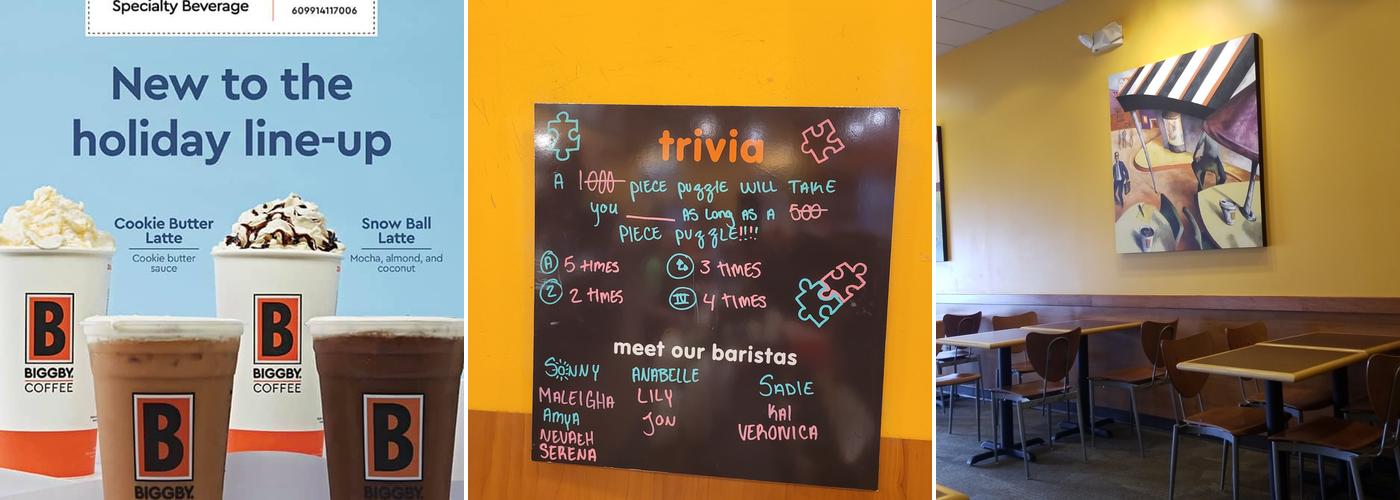 Specialty Beverage
609914117006
New to the
holiday line-up
Cookie Butter
Latte
Cookie butter
sauce
Snow Ball
Latte
Mocha, almond, and
coconut
B
BIGGBY.
COFFEE
B
BIGGBY.
COFFEE
B
BIGGBY.
B
BIGGBY.
trivia
A 1000 PIECE puzzle WILL TAKE
you ____ AS Long AS A 500
PIECE puzzle!!!!
A 5 TIMES
b 3 TIMES
2 2 TIMES
IV 4 TIMES
meet our baristas
SONNY ANABELLE SADIE
MALEIGHA LILY KAI
AMYA JON VERONICA
NEVAEH
SERENA